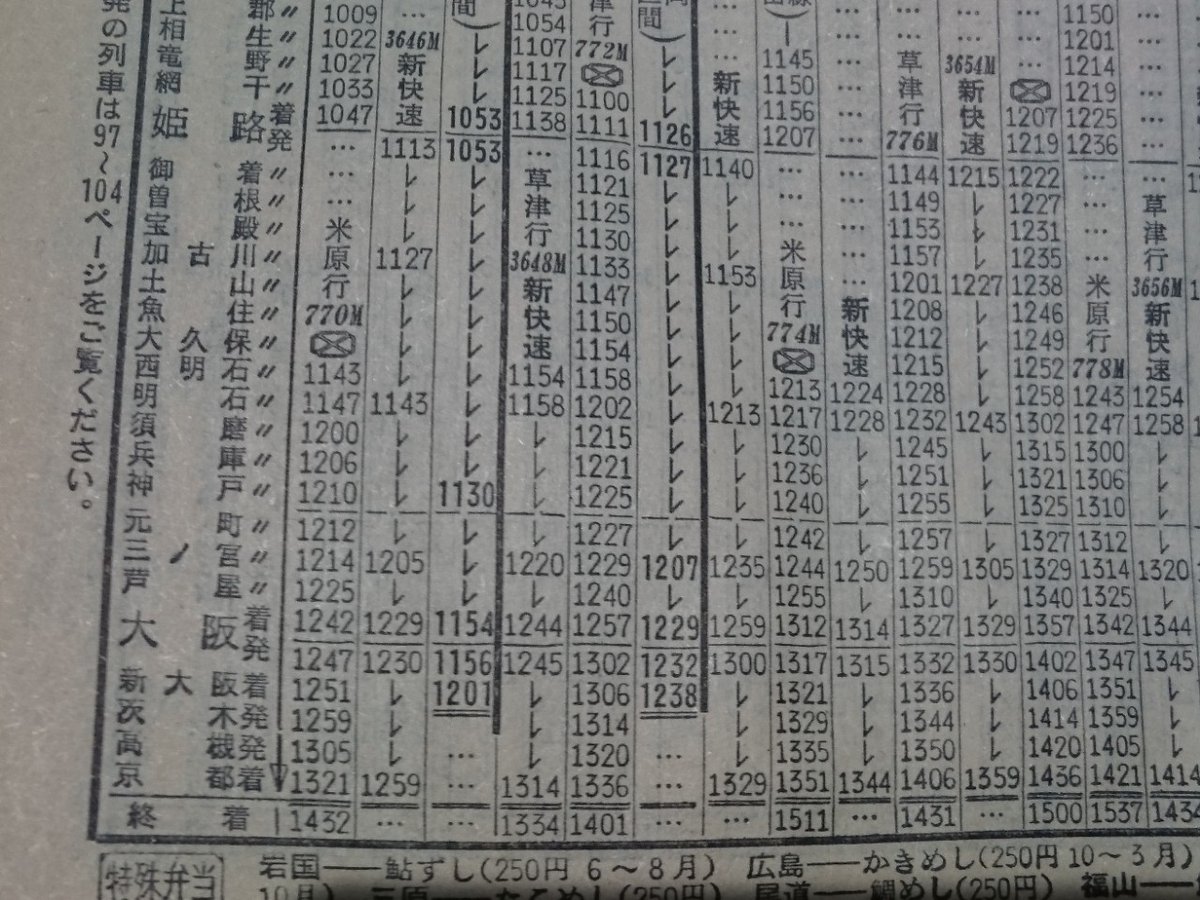 上 郡 〃 1009 … 間 1045 津 間 … … … … 1150 …
相 生 〃 1022 3646M ） 1054 行 ） … … … … 1201 …
竜 野 〃 1027 新 レ 1107 772M レ … 1145 … 草 3654M … 1214 …
網 干 〃 1033 快 レ 1117 レ 新 1150 … 津 新 1219 …
姫 路 着 1047 速 1053 1125 1100 レ 快 1156 … 行 快 1207 1225 …
1138 1111 1126 速 1207 … 776M 速 1219 1236 …
発 … 1113 1053 … 1116 1127 1140 … … 1144 1215 1222 … …
御 着 〃 … レ レ 草 1121 レ レ … … 1149 レ 1227 … 草
曽 根 〃 … レ レ 津 1125 レ レ … … 1153 レ 1231 … 津
宝 殿 〃 米 レ レ 行 1130 レ レ 米 … 1157 レ 1235 … 行
加 古 川 〃 原 1127 レ 3648M 1133 レ 1153 原 … 1201 1227 1238 米 3656M
土 山 〃 行 レ レ 新 1147 レ レ 行 新 1208 レ 1246 原 新
魚 住 〃 770M レ レ 快 1150 レ レ 774M 快 1212 レ 1249 行 快
大 久 保 〃 レ レ 速 1154 レ レ 速 1215 レ 1252 778M 速
西 明 石 〃 1143 レ レ 1154 1158 レ レ 1213 1224 1228 レ 1258 1243 1254
明 石 〃 1147 1143 レ 1158 1202 レ 1213 1217 1228 1232 1243 1302 1247 1258
須 磨 〃 1200 レ レ レ 1215 レ レ 1230 レ 1245 レ 1315 1300 レ
兵 庫 〃 1206 レ レ レ 1221 レ レ 1236 レ 1251 レ 1321 1306 レ
神 戸 〃 1210 レ 1130 レ 1225 レ レ 1240 レ 1255 レ 1325 1310 レ
元 町 〃 1212 レ レ レ 1227 レ レ 1242 レ 1257 レ 1327 1312 レ
三 ノ 宮 〃 1214 1205 レ 1220 1229 1207 1235 1244 1250 1259 1305 1329 1314 1320
芦 屋 〃 1225 レ レ レ 1240 レ レ 1255 レ 1310 レ 1340 1325 レ
大 阪 着 1242 1229 1154 1244 1257 1229 1259 1312 1314 1327 1329 1357 1342 1344
発 1247 1230 1156 1245 1302 1232 1300 1317 1315 1332 1330 1402 1347 1345
新 大 阪 着 1251 レ 1201 レ 1306 1238 レ 1321 レ 1336 レ 1406 1351 レ
茨 木 発 1259 レ レ 1314 レ 1329 レ 1344 レ 1414 1359 レ
高 槻 発 1305 レ … レ 1320 … レ 1335 レ 1350 レ 1420 1405 レ
京 都 着 1321 1259 … 1314 1336 … 1329 1351 1344 1406 1359 1436 1421 1414
終 着 1432 … … 1334 1401 … … 1511 … 1431 … 1500 1537 1434
発の列車は97〜104ページをご覧ください。
特殊弁当
岩国──鮎ずし(250円 6〜8月) 広島──かきめし(250円 10〜3月)
10月) 三原──たこめし(250円) 尾道──鯛めし(250円) 福山──